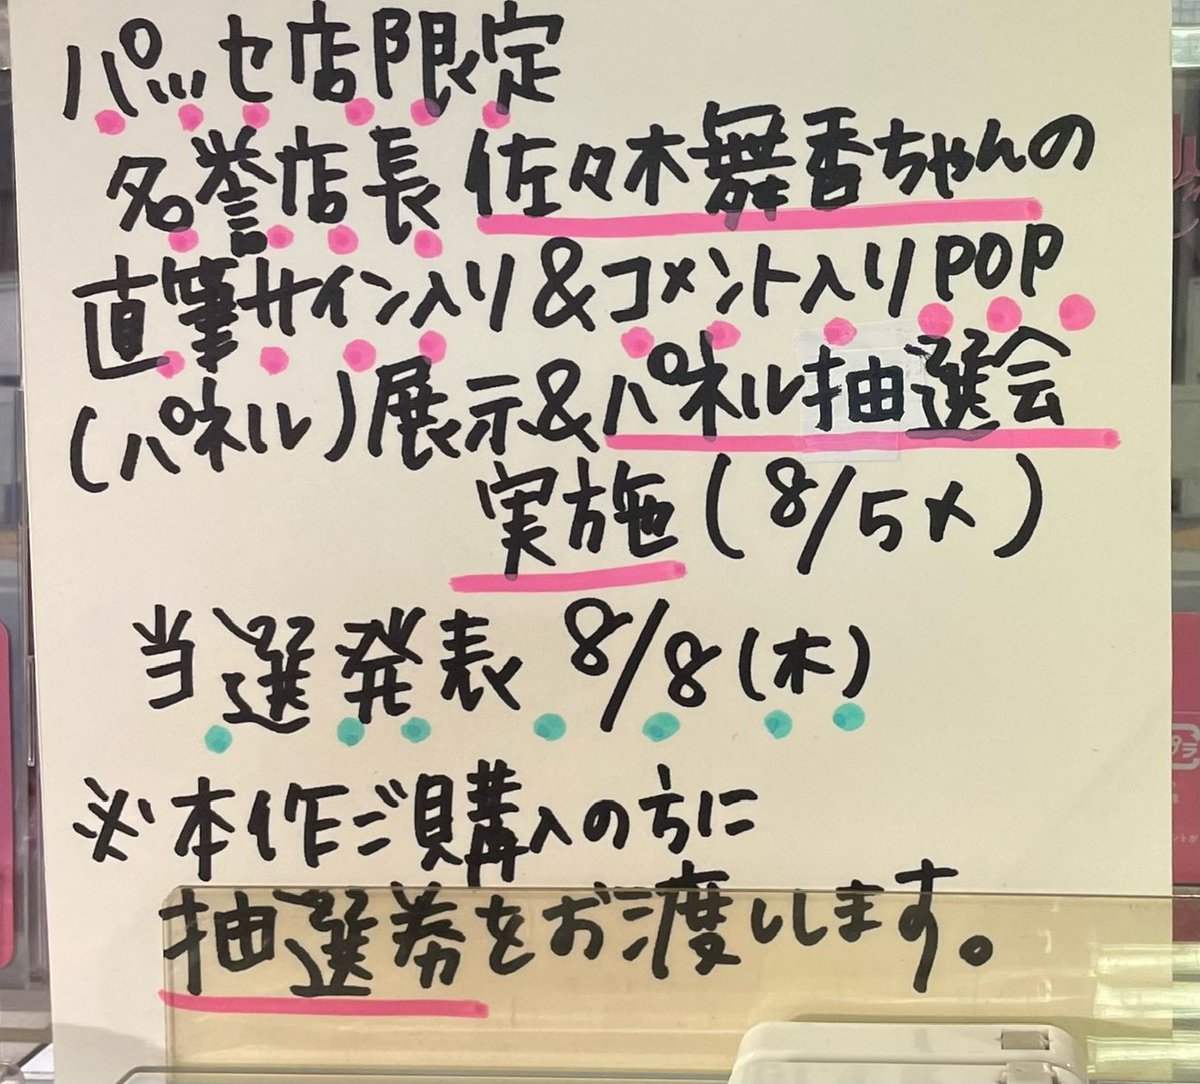 パッセ店限定
名誉店長 佐々木舞香ちゃんの
直筆サイン入り&コメント入りPOP
(パネル)展示&パネル抽選会
実施(8/5〆)
当選発表 8/8(木)
※本作ご購入の方に
抽選券をお渡しします。